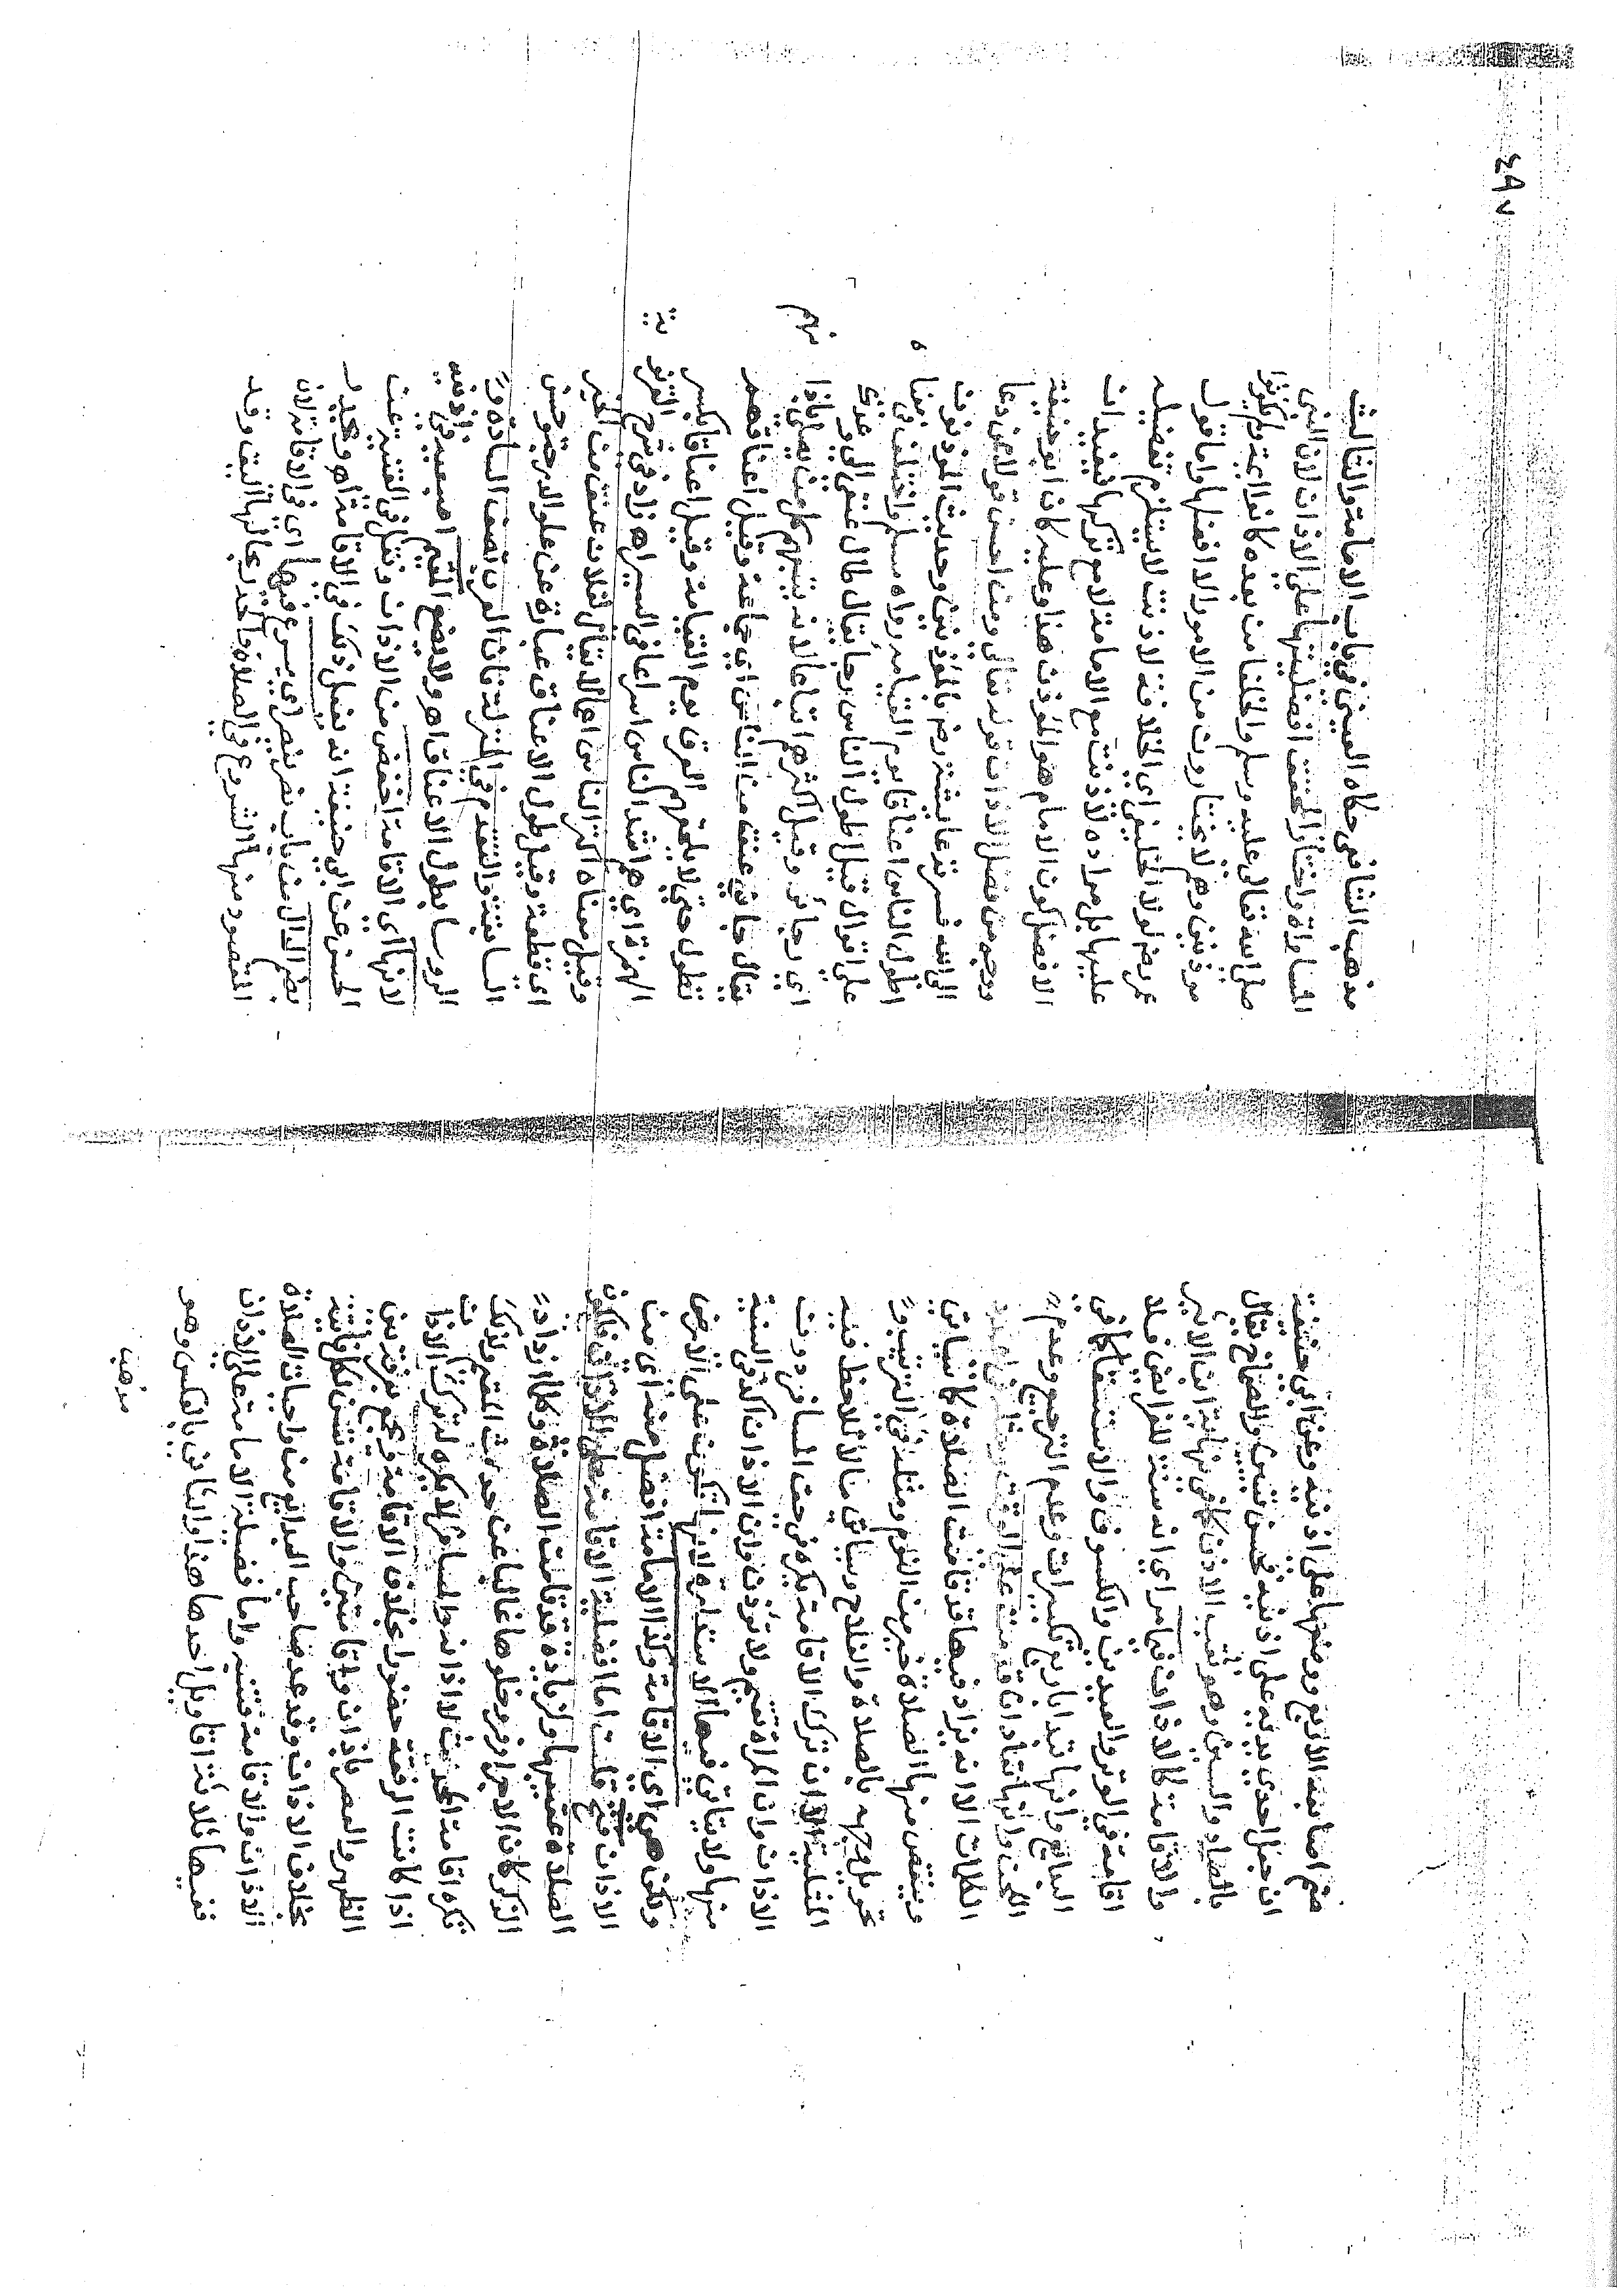 ضم اصابعه الاربع ووضعها على اذنيه وعن ابى حنيفة
ان جعل احدى يديه على اذنيه فحسن قنية والصماخ يقال
بالصاد والسين وهو ثقب الاذن كما فى نهاية ابن الاثير
والاقامة كالاذان فيما مر اى انه سنة للفرايض فلا
اقامة فى الوتر والعيدين والكسوف والاستسقا كما فى
البدايع وانها تبدا باربع تكبيرات وعدم الترجيع وعدم
اللحن وانها تعاد اذا قدمت على الوقت
الكلمات الا انه يزاد فيها قد قامت الصلاة كما سياتى
وينقص منها الصلاة خير من النوم ومثله فى الترتيب و
تحويل وجهه بالصلاة والفلاح وسياتى ما لا تلاحظ فيه
المثلية الا ان ترك الاقامة يكره فى حق المسافر دون
الاذان وان المراة تقيم ولا تؤذن وان الاذان اكد فى السنية
منها ولا يتاتى فيها الاستدارة لانها تكون على الارض
ولكن هى اى الاقامة وكذا الامامة افضل منه اى من
الاذان فتح قلت اما افضلية الاقامة على الاذان فلكون
الصلاة عقبها ولزيادة قد قامت الصلاة وكلما ازداد
الذكر كان الاجر اوفر وخلوها غالبا عن حدوث المقيم ولذلك
تكره اقامة المحدث لا اذانه والمسافر لا يكره له ترك الاذان
اذا كانت الرفقة حضورا بخلاف الاقامة وجمع بعرفة بين
الظهر والعصر باذان واقامتين والاقامة تسن لكل فايتة
بخلاف الاذان وقد عد صاحب البدايع من واجبات الصلاة
الاذان والاقامة قنية واما افضلية الامامة على الاذان
ففيها ثلاثة اقاويل احدها هذا والثانى بالعكس وهو
مذهب
٤٩٧
مذهب الشافعى حكاه العينى فى باب الامامة والثالث
المساواة واختار المحقق افضليتها على الاذان لان النبى
صلى الله تعالى عليه وسلم والخلفا من بعده كانوا ايمة ولم يكونوا
موذنين وهم لا يختارون من الامور الا افضلها واما قول
عمر رض لولا الخليفى اى الخلافة لاذنت لا يستلزم تفضيله
عليها بل مراده لاذنت مع الامامة لا مع تركها فيفيد ان
الافضل كون الامام هو الموذن هذا وعليه كان ابو حنيفة
وهو من فضل الاذان قوله تعالى ومن احسن قولا ممن دعا
الى الله فسرته عايشة رض بالموذنين وحديث الموذنون
اطول الناس اعناقا يوم القيامة رواه مسلم واختلف فى معناه
على اقوال قيل اطول الناس رجاء يقال طال عنقى الى وعدك
اى رجائى وقيل اكثرهم اتباعا لانه يتبعهم كل من يصلى باذانهم
يقال جانى عنق من الناس اى جماعة وقيل اعناقهم
تطول حتى لا يلجمهم العرق يوم القيامة وقيل اعناقا بكسر
الهمزة اى هم اشد الناس اسراعا فى السير اه زاد فى شرح القرتبى
وقيل معناه اكثر الناس اعمالا يقال لفلان عنق من الخير
اى قطعة وقيل طول الاعناق عبارة عن علو الدرجة وحسن
السابقة والتقدم فى المنزلة فان العرب تصف السادة و
الروسا بطول الاعناق اه ولا يضع المقيم اصبعيه فى اذنيه
لانها اى الاقامة اخفض من الاذان ونقل فى القنية عن
الحسن عن ابى حنيفة انه يفعل ذلك فى الاقامة اه ويحدر
بضم الدال من باب نصر اى يسرع فيها اى فى الاقامة لان
المقصود منها الشروع فى الصلاة والحدر بحالها اليق وقد